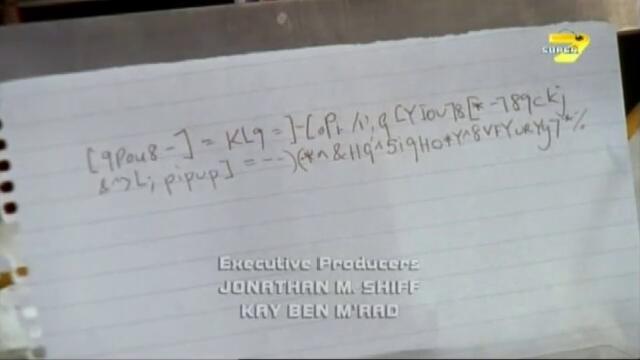 SUPER 7
[qpou8-] = KLq = ]-[oPr /1, q [YIou78[* -789ckj
&^>L; pipup] = ---)(*^&Hq^5iqHo*Y^8VFYuRYg7Y*%
Executive Producers
JONATHAN M. SHIFF
KAY BEN M'RAD